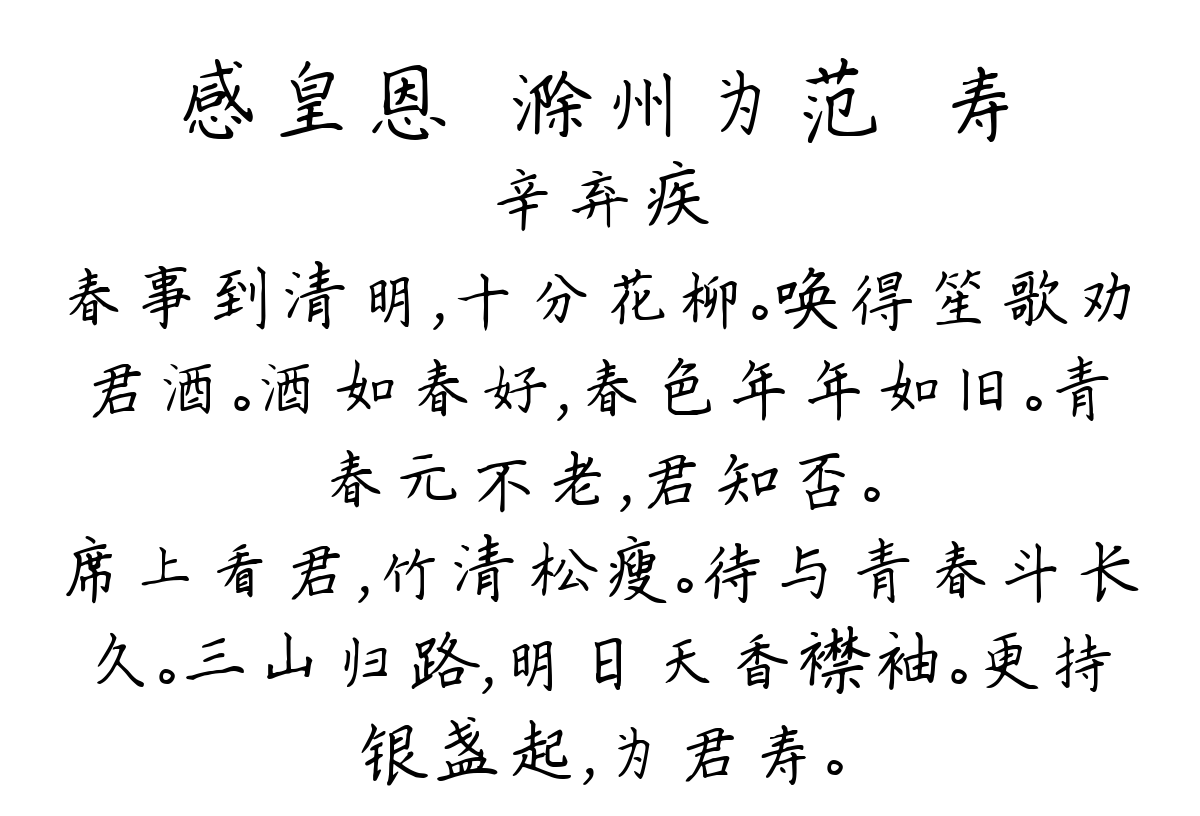 感皇恩 滁州为范 寿
辛弃疾
春事到清明,十分花柳。唤得笙歌劝
君酒。酒如春好,春色年年如旧。青
春元不老,君知否。
席上看君,竹清松瘦。待与青春斗长
久。三山归路,明日天香襟袖。更持
银盏起,为君寿。